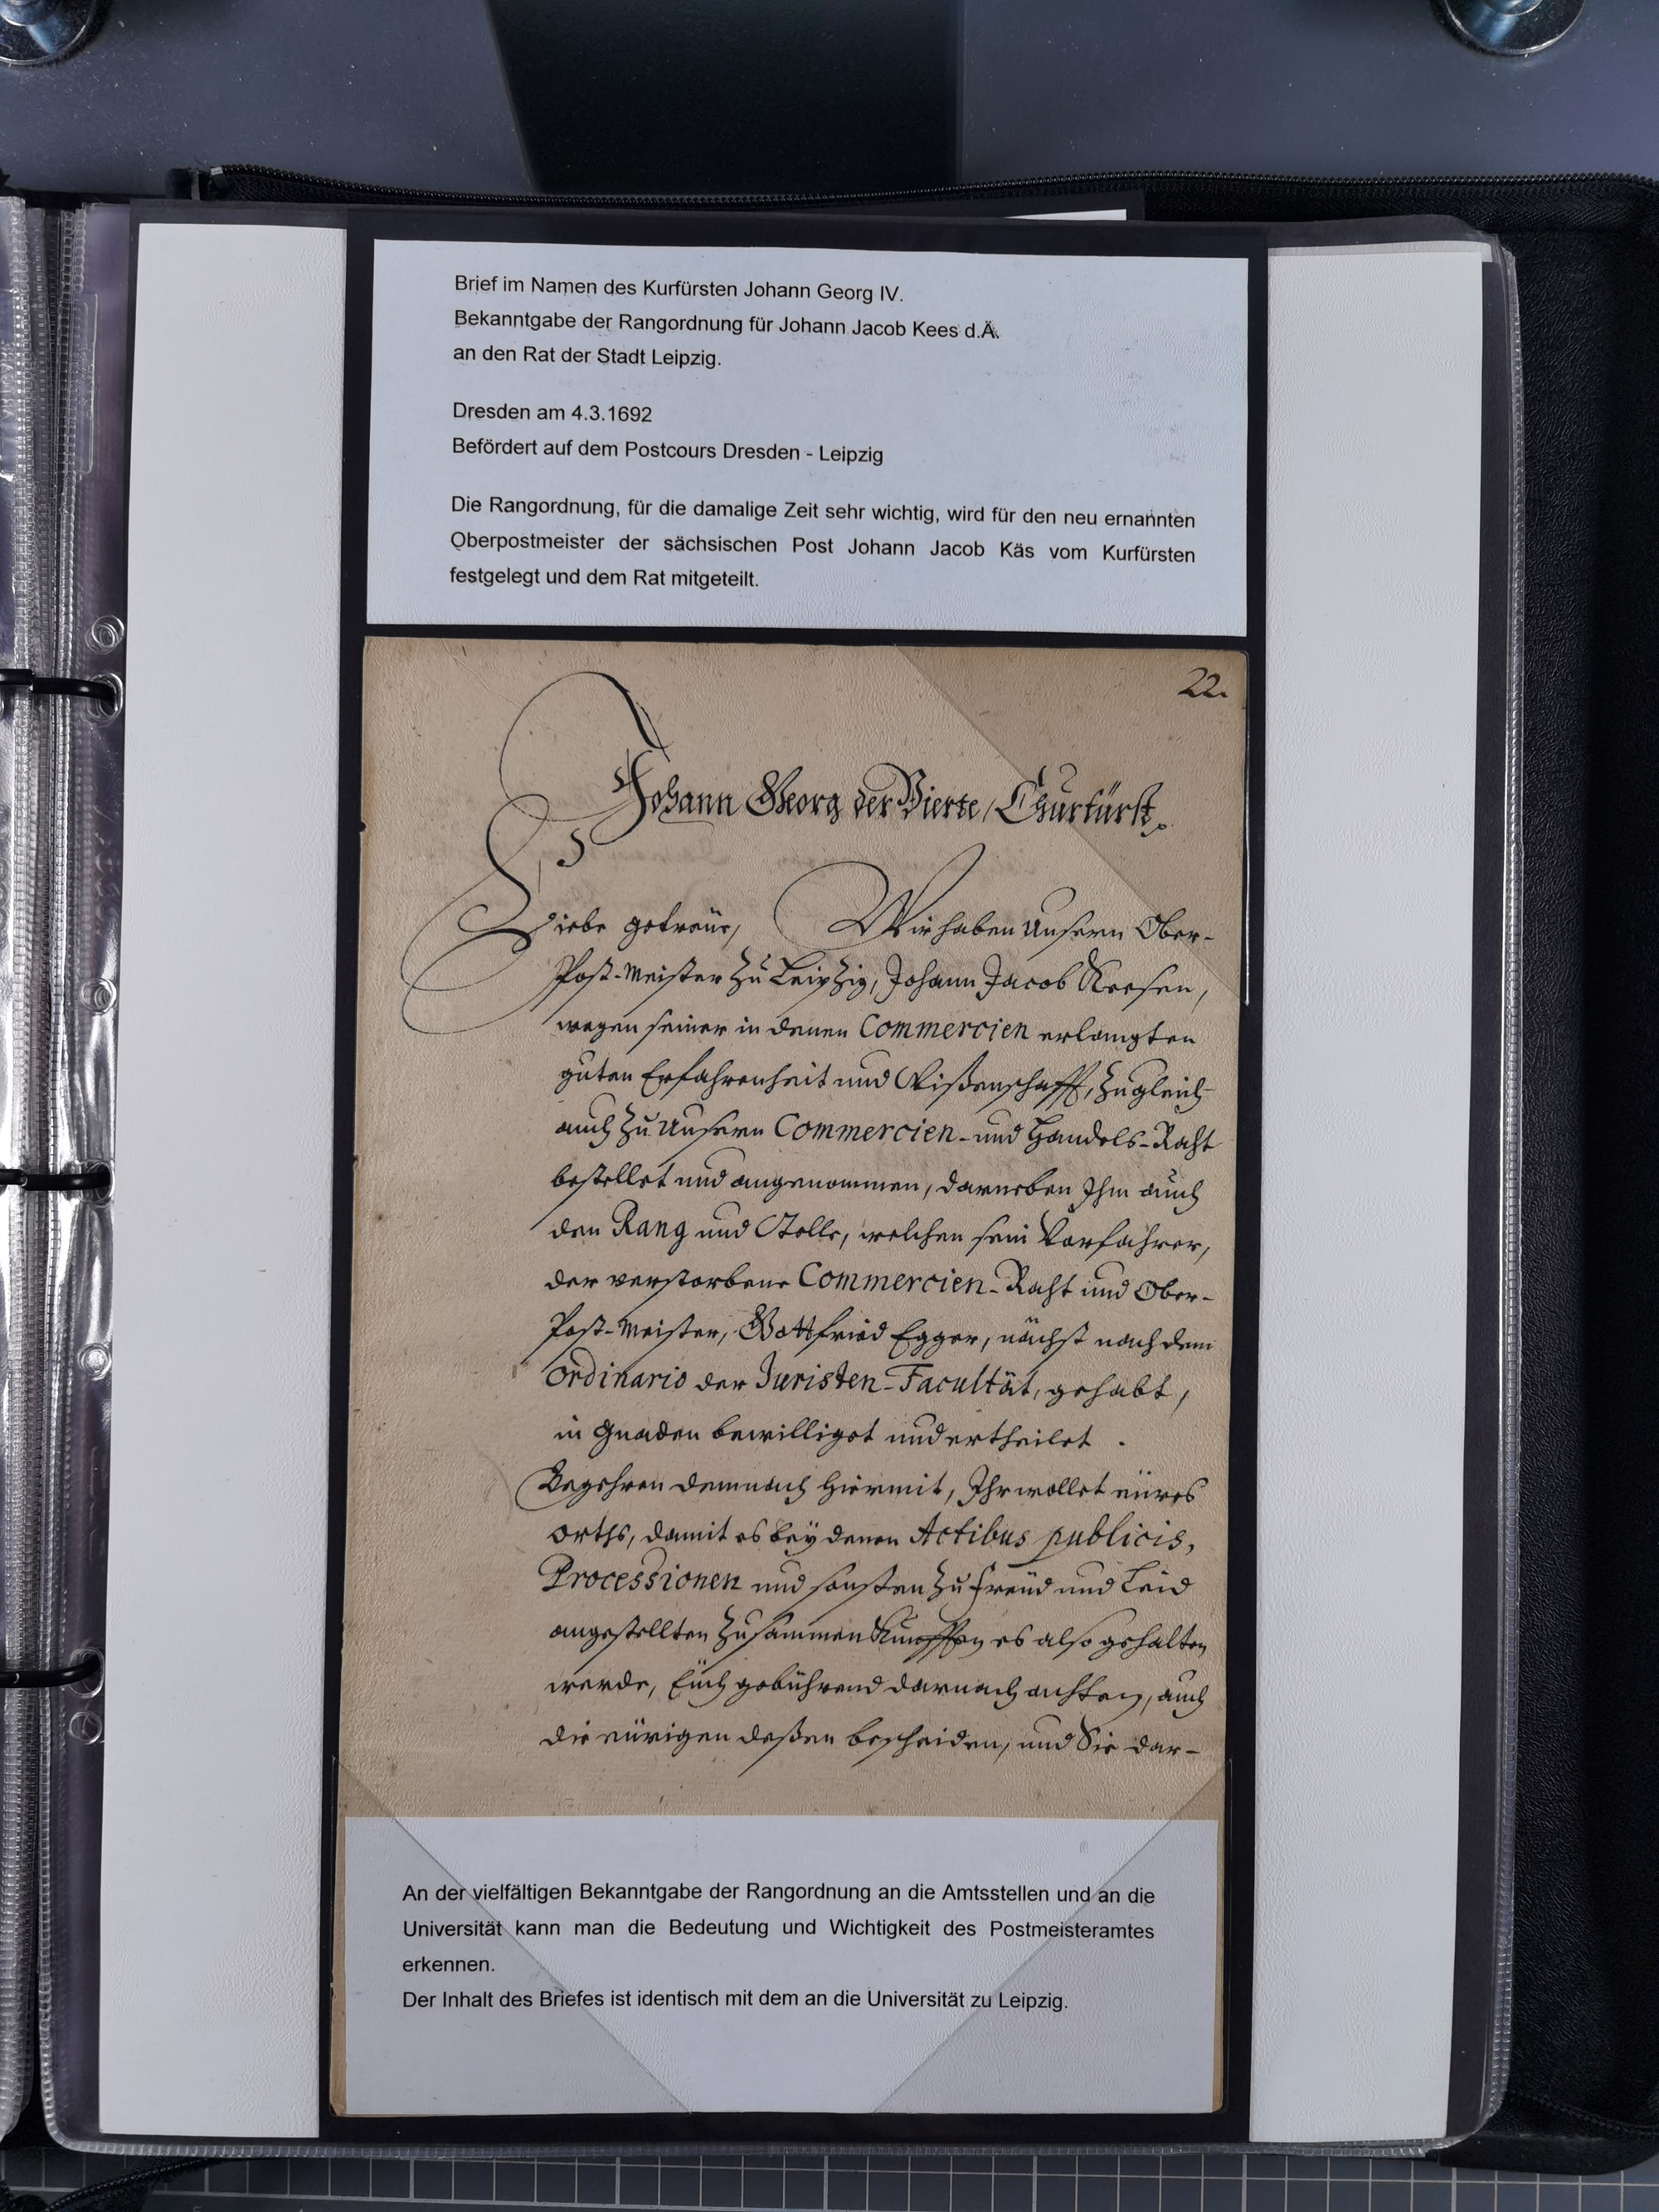 Brief im Namen des Kurfürsten Johann Georg IV.
Bekanntgabe der Rangordnung für Johann Jacob Kees d.Ä.
an den Rat der Stadt Leipzig.
Dresden am 4.3.1692
Befördert auf dem Postcours Dresden - Leipzig
Die Rangordnung, für die damalige Zeit sehr wichtig, wird für den neu ernannten
Oberpostmeister der sächsischen Post Johann Jacob Käs vom Kurfürsten
festgelegt und dem Rat mitgeteilt.
22.
Johann Georg der Vierte, Churfürst.
Liebe getreüe, Wir haben Unsern Ober-
Post-Meister zu Leipzig, Johann Jacob Keesen,
wegen seiner in denen Commercien erlangten
guten Erfahrenheit und Wißenschafft, zugleich
auch zu Unsern Commercien- und Handels-Raht
bestellet und angenommen, darneben Ihm auch
den Rang und Stelle, welchen sein Vorfahrer,
der verstorbene Commercien-Raht und Ober-
Post-Meister, Gottfried Egger, nächst nach dem
Ordinario der Juristen-Facultät, gehabt,
in Gnaden bewilliget und ertheilet.
Begehren demnach hiermit, Ihr wollet eüres
orths, damit es bey denen Actibus publicis,
Processionen und sonsten zu freüd und Leid
angestellten Zusammenkunfften es also gehalten
werde, Eüch gebührend darnach achten, auch
die eürigen deßen bescheiden, und Sie dar-
An der vielfältigen Bekanntgabe der Rangordnung an die Amtsstellen und an die
Universität kann man die Bedeutung und Wichtigkeit des Postmeisteramtes
erkennen.
Der Inhalt des Briefes ist identisch mit dem an die Universität zu Leipzig.